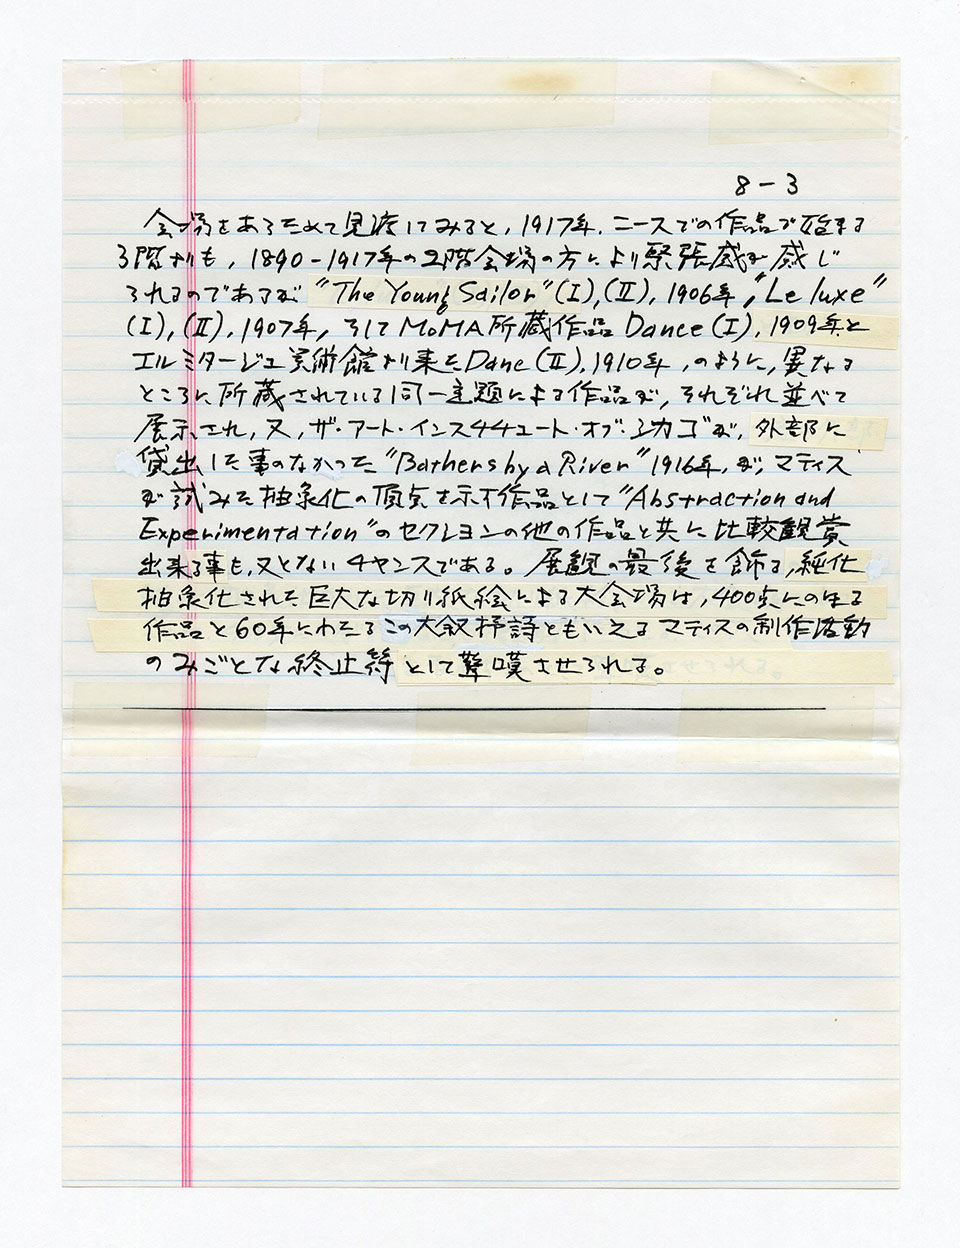 8-3
会場をあらためて見渡してみると, 1917年, ニースでの作品で始まる
3階よりも, 1890-1917年の2階会場の方により緊張感が感じ
られるのであるが "The Young Sailor" (I),(II), 1906年, "Le luxe"
(I),(II), 1907年, そしてMoMA所蔵作品 Dance (I), 1909年と
エルミタージュ美術館より来た Danc (II), 1910年, のように, 異なる
ところに所蔵されている同一主題による作品が, それぞれ並べて
展示され, 又, ザ・アート・インスチチュート・オブ・シカゴが, 外部に
貸出した事のなかった "Bathers by a River" 1916年, が, マティス
が試みた抽象化の頂点を示す作品として "Abstraction and
Experimentation" のセクションの他の作品と共に比較観賞
出来る事も, 又とないチャンスである。展観の最後を飾る, 純化
抽象化された巨大な切り紙絵による大会場は, 400点にのぼる
作品と60年にわたるこの大叙抒詩ともいえるマティスの制作活動
のみごとな終止符として驚嘆させられる。